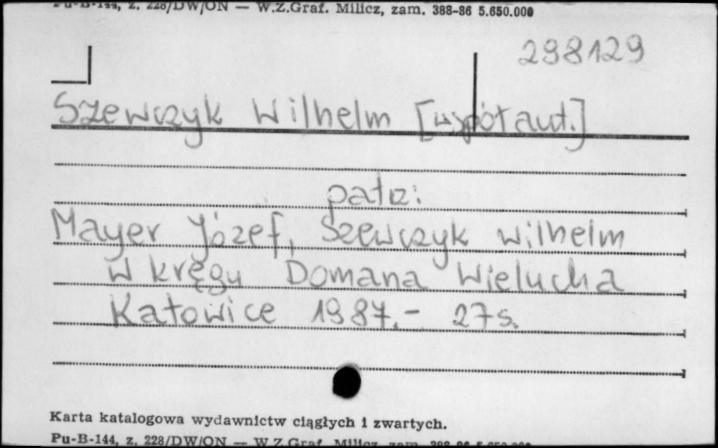 Pu-B-144, z. 228/DW/ON — W.Z.Graf. Milicz, zam. 388-86 5.650.000
298129
Szewczyk Wilhelm [współaut.]
patrz:
Mayer Józef, Szewczyk Wilhelm
W kręgu Domana Wielucha
Katowice 1987.- 27 s.
Karta katalogowa wydawnictw ciągłych i zwartych.
Pu-B-144, z. 228/DW/ON — W.Z.Graf. Milicz, zam. 388-86 5.650.000